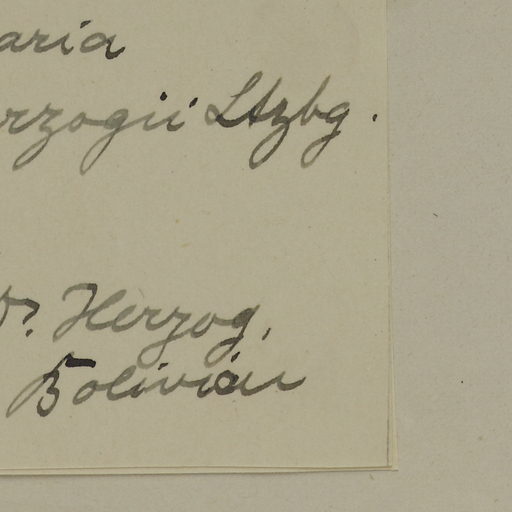 aria
rzogii Ltzbg.
Herzog,
Bolivian